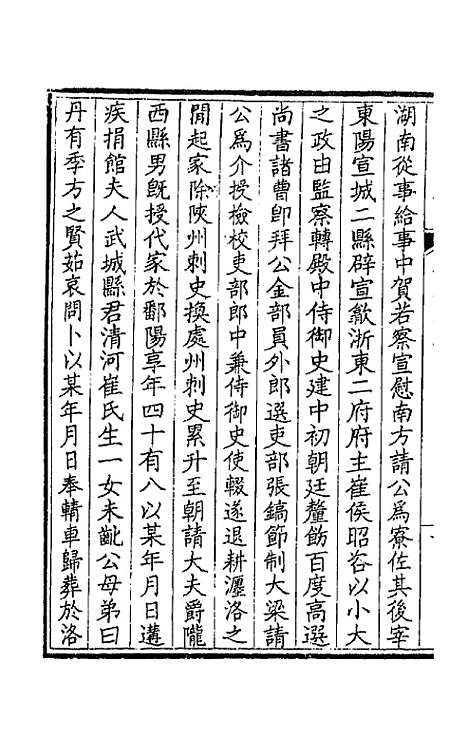 湖南從事給事中賀若察宣慰南方請公爲寮佐其後宰
東陽宣城二縣辟宣歙浙東二府府主崔侯昭咨以小大
之政由監察轉殿中侍御史建中初朝廷釐飭百度高選
尚書諸曹卽拜公金部員外郎選吏部張鎬節制大梁請
公爲介授檢校吏部郎中兼侍御史使輟遂退耕瀍洛之
閒起家除陝州刺史換處州刺史累升至朝請大夫爵隴
西縣男旣授代家於鄱陽享年四十有八以某年月日遘
疾捐館夫人武城縣君清河崔氏生一女未齔公母弟曰
丹有季方之賢茹哀問卜以某年月日奉輤車歸葬於洛